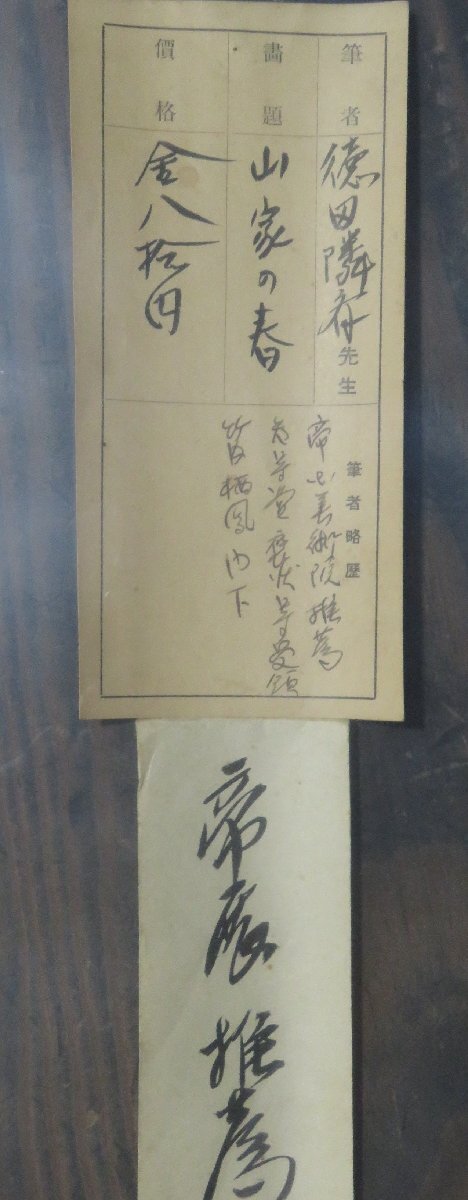 筆者 徳田隣斎先生
畫題 山家の春
價格 金八拾円
筆者略歴
帝国美術院推薦
賞状等受領
竹内栖鳳門下
帝展推薦